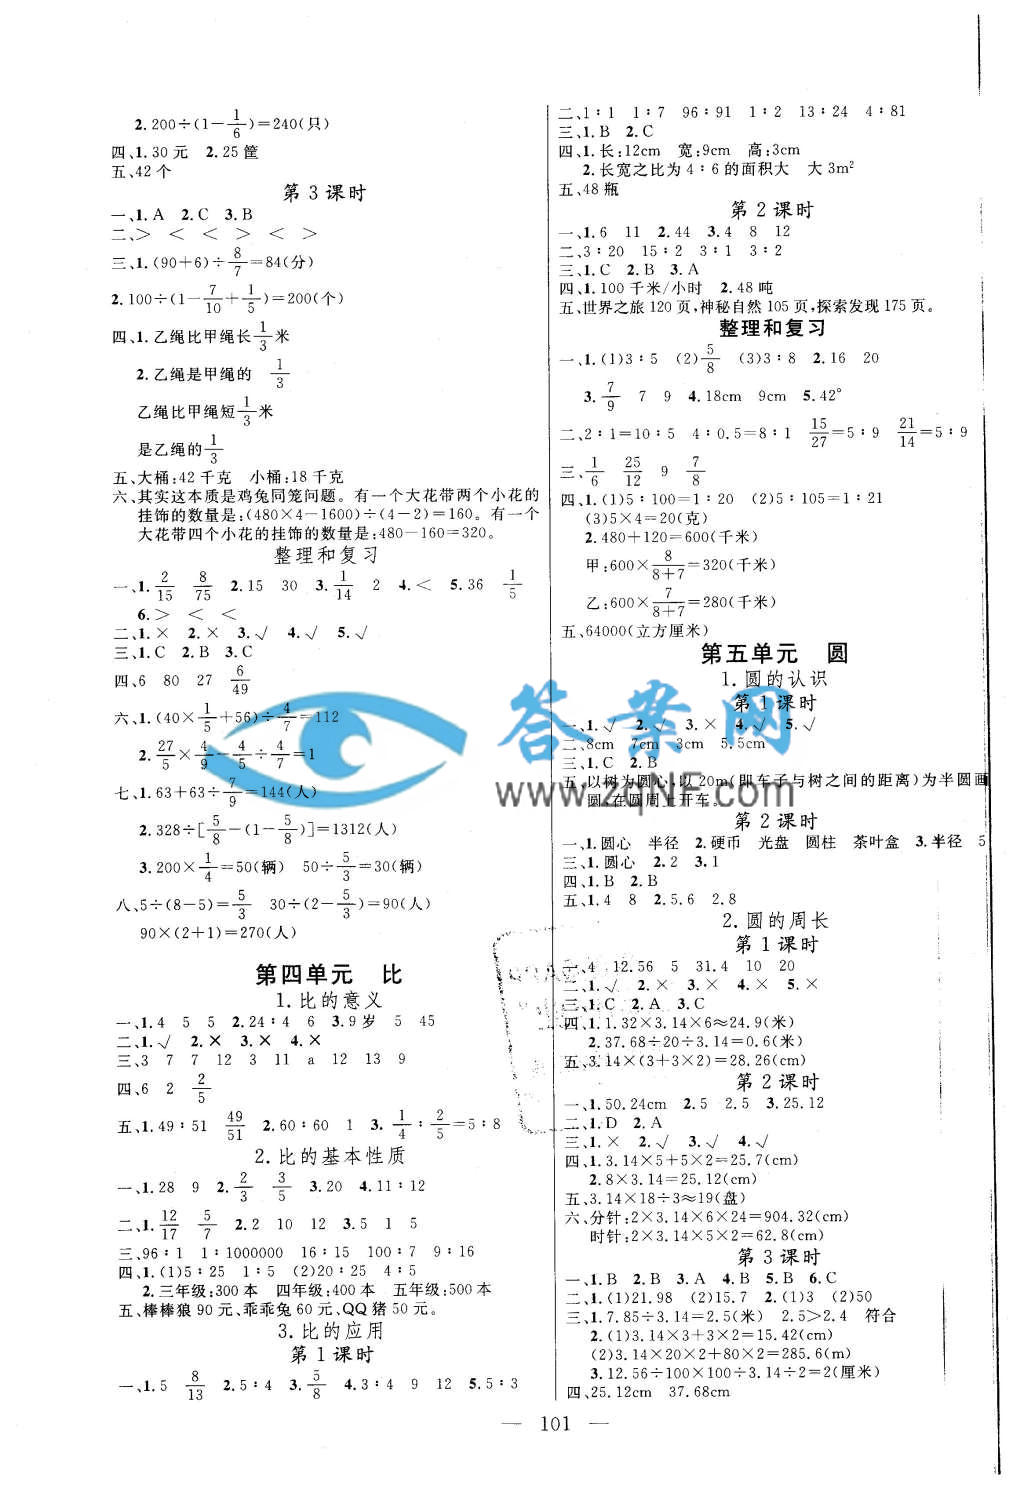 2.200÷(1−1/6)=240(只)
四、1.30元 2.25筐
五、42个
第3课时
一、1.A 2.C 3.B
二、> < < > < >
三、1.(90+6)÷8/7=84(分)
2.100÷(1−7/10+1/5)=200(个)
四、1.乙绳比甲绳长1/3米
2.乙绳是甲绳的 1/3
乙绳比甲绳短1/3米
是乙绳的1/3
五、大桶:42千克 小桶:18千克
六、其实这本质是鸡兔同笼问题。有一个大花带两个小花的
挂饰的数量是:(480×4−1600)÷(4−2)=160。有一个
大花带四个小花的挂饰的数量是:480−160=320。
整理和复习
一、1.2/15 8/75 2.15 30 3.1/14 2 4.< 5.36 1/5
6.> < <
二、1.× 2.× 3.√ 4.√ 5.√
三、1.C 2.B 3.C
四、6 80 27 6/49
六、1.(40×1/5+56)÷4/7=112
2.27/5×4/9−4/5÷4/7=1
七、1.63+63÷7/9=144(人)
2.328÷[5/8−(1−5/8)]=1312(人)
3.200×1/4=50(辆) 50÷5/3=30(辆)
八、5÷(8−5)=5/3 30÷(2−5/3)=90(人)
90×(2+1)=270(人)
第四单元 比
1.比的意义
一、1.4 5 5 2.24∶4 6 3.9岁 5 45
二、1.√ 2.× 3.× 4.×
三、3 7 7 12 3 11 a 12 13 9
四、6 2 2/5
五、1.49∶51 49/51 2.60∶60 1 3.1/4∶2/5=5∶8
2.比的基本性质
一、1.28 9 2.2/3 3/5 3.20 4.11∶12
二、1.12/17 5/7 2.2 10 12 3.5 1 5
三、96∶1 1∶1000000 16∶15 100∶7 9∶16
四、1.(1)5∶25 1∶5 (2)20∶25 4∶5
2.三年级:300本 四年级:400本 五年级:500本
五、棒棒狼90元、乖乖兔60元、QQ猪50元。
3.比的应用
第1课时
一、1.5 8/13 2.5∶4 3.5/8 4.3∶4 9 12 5.5∶3
二、1∶1 1∶7 96∶91 1∶2 13∶24 4∶81
三、1.B 2.C
四、1.长:12cm 宽:9cm 高:3cm
2.长宽之比为4∶6的面积大 大3m²
五、48瓶
第2课时
一、1.6 11 2.44 3.4 8 12
二、3∶20 15∶2 3∶1 3∶2
三、1.C 2.B 3.A
四、1.100千米/小时 2.48吨
五、世界之旅120页,神秘自然105页,探索发现175页。
整理和复习
一、1.(1)3∶5 (2)5/8 (3)3∶8 2.16 20
3.7/9 7 9 4.18cm 9cm 5.42°
二、2∶1=10∶5 4∶0.5=8∶1 15/27=5∶9 21/14=5∶9
三、1/6 25/12 9 7/8
四、1.(1)5∶100=1∶20 (2)5∶105=1∶21
(3)5×4=20(克)
2.480+120=600(千米)
甲:600×8/8+7=320(千米)
乙:600×7/8+7=280(千米)
五、64000(立方厘米)
第五单元 圆
1.圆的认识
第1课时
一、1.√ 2.√ 3.× 4.√ 5.√
二、8cm 7cm 3cm 5.5cm
三、1.C 2.B
五、以树为圆心,以20m(即车子与树之间的距离)为半圆画
圆,在圆周上开车。
第2课时
一、1.圆心 半径 2.硬币 光盘 圆柱 茶叶盒 3.半径 5
三、1.圆心 2.2 3.1
四、1.B 2.B
五、1.4 8 2.5.6 2.8
2.圆的周长
第1课时
一、4 12.56 5 31.4 10 20
二、1.√ 2.× 3.× 4.× 5.×
三、1.C 2.A 3.C
四、1.1.32×3.14×6≈24.9(米)
2.37.68÷20÷3.14=0.6(米)
五、3.14×(3+3×2)=28.26(cm)
第2课时
一、1.50.24cm 2.5 2.5 3.25.12
二、1.D 2.A
三、1.× 2.√ 3.√ 4.√
四、1.3.14×5+5×2=25.7(cm)
2.8×3.14=25.12(cm)
五、3.14×18÷3≈19(盘)
六、分针:2×3.14×6×24=904.32(cm)
时针:2×3.14×5×2=62.8(cm)
第3课时
一、1.B 2.B 3.A 4.B 5.B 6.C
二、1.(1)21.98 (2)15.7 2.(1)3 (2)50
三、1.7.85÷3.14=2.5(米) 2.5>2.4 符合
2.(1)3.14×3+3×2=15.42(cm)
(2)3.14×20×2+80×2=285.6(m)
3.12.56÷100×100÷3.14÷2=2(厘米)
四、25.12cm 37.68cm
— 101 —
答案网
www.zqNF.com